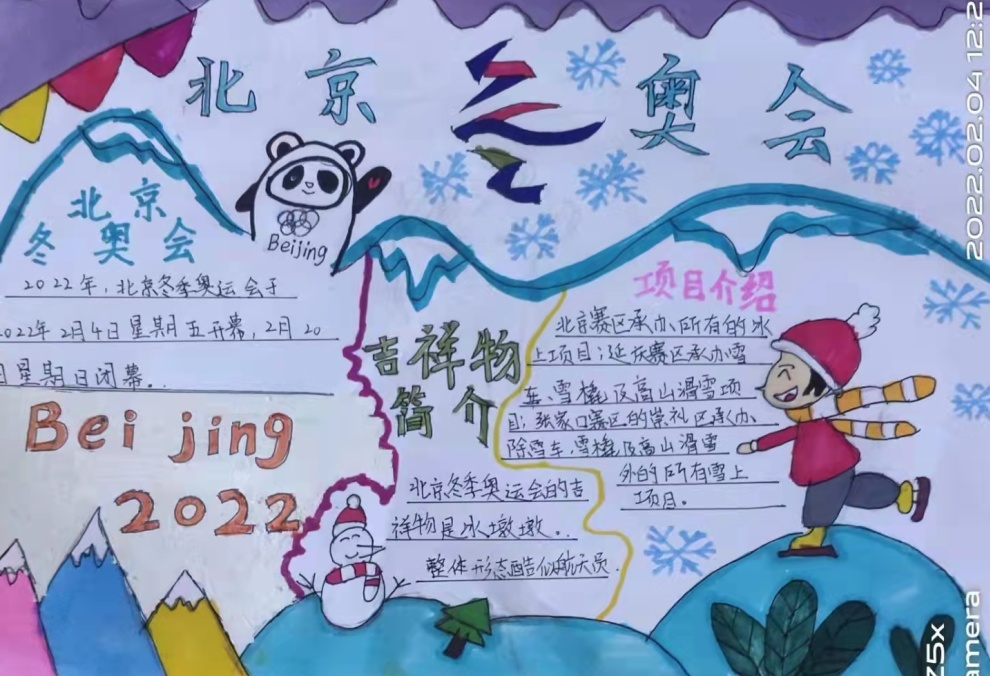 北京冬奥会
北京
冬奥会
Beijing
2022年，北京冬季奥运会于
2022年2月4日星期五开幕，2月20
日星期日闭幕。
Bei jing
2022
吉祥物
简介
北京冬季奥运会的吉
祥物是冰墩墩。
整体形态酷似航天员.
项目介绍
北京赛区承办所有的冰
上项目；延庆赛区承办雪
车、雪橇及高山滑雪项
目；张家口赛区的崇礼区承办
除雪车、雪橇及高山滑雪
外的所有雪上
项目。
2022.02.04 12:2
Z5x
amera